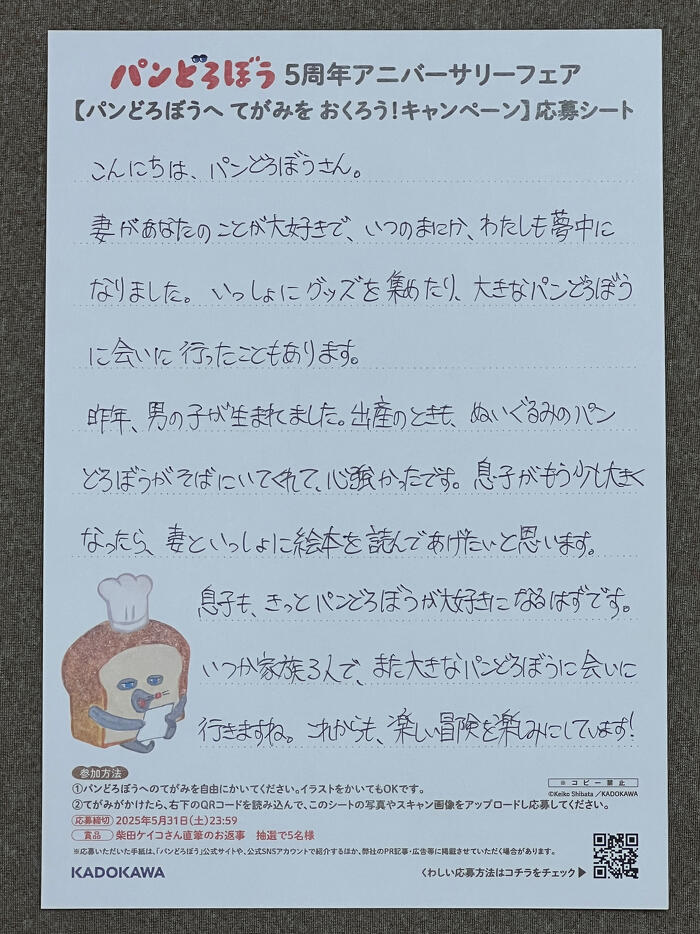 パンどろぼう 5周年アニバーサリーフェア
【パンどろぼうへ てがみを おくろう!キャンペーン】応募シート
こんにちは、パンどろぼうさん。
妻があなたのことが大好きで、いつのまにか、わたしも夢中に
なりました。いっしょにグッズを集めたり、大きなパンどろぼう
に会いに行ったこともあります。
昨年、男の子が生まれてました。出産のときも、ぬいぐるみのパン
どろぼうがそばにいてくれて、心強かったです。息子がもう少し大きく
なったら、妻といっしょに絵本を読んであげたいと思います。
息子も、きっとパンどろぼうが大好きになるはずです。
いつか家族3人で、また大きなパンどろぼうに会いに
行きますね。これからも、楽しい冒険を楽しみにしています!
参加方法
①パンどろぼうへのてがみを自由にかいてください。イラストをかいてもOKです。
②てがみがかけたら、右下のQRコードを読み込んで、このシートの写真やスキャン画像をアップロードし応募してください。
応募締切 2025年5月31日(土)23:59
賞品 柴田ケイコさん直筆のお返事 抽選で5名様
※応募いただいた手紙は、「パンどろぼう」公式サイトや、公式SNSアカウントで紹介するほか、弊社のPR記事・広告等に掲載させていただく場合があります。
※コピー禁止
©Keiko Shibata/KADOKAWA
KADOKAWA
くわしい応募方法はコチラをチェック▶